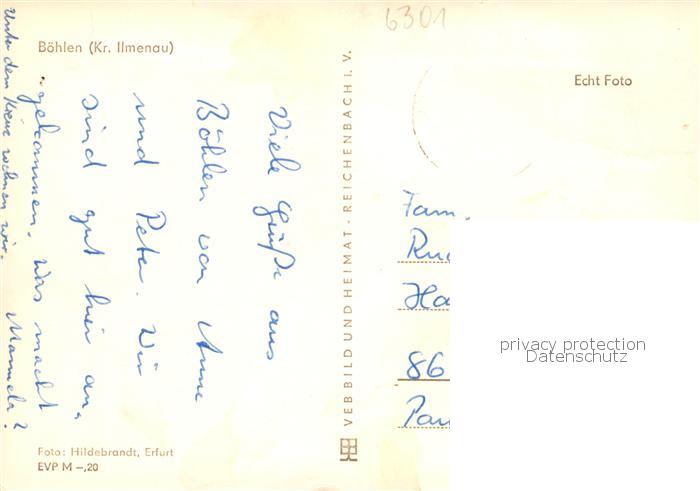 6301
Böhlen (Kr. Ilmenau)
Echt Foto
Viele Grüße aus
Böhlen von Anne
und Peter. Wir
sind gut hier an-
gekommen. Was macht
Manuela?
Unter dem Kreuz wohnen wir.
VEB BILD UND HEIMAT · REICHENBACH I. V.
Fam.
Ru
Ha
86
Pau
privacy protection
Datenschutz
Foto: Hildebrandt, Erfurt
EVP M –,20